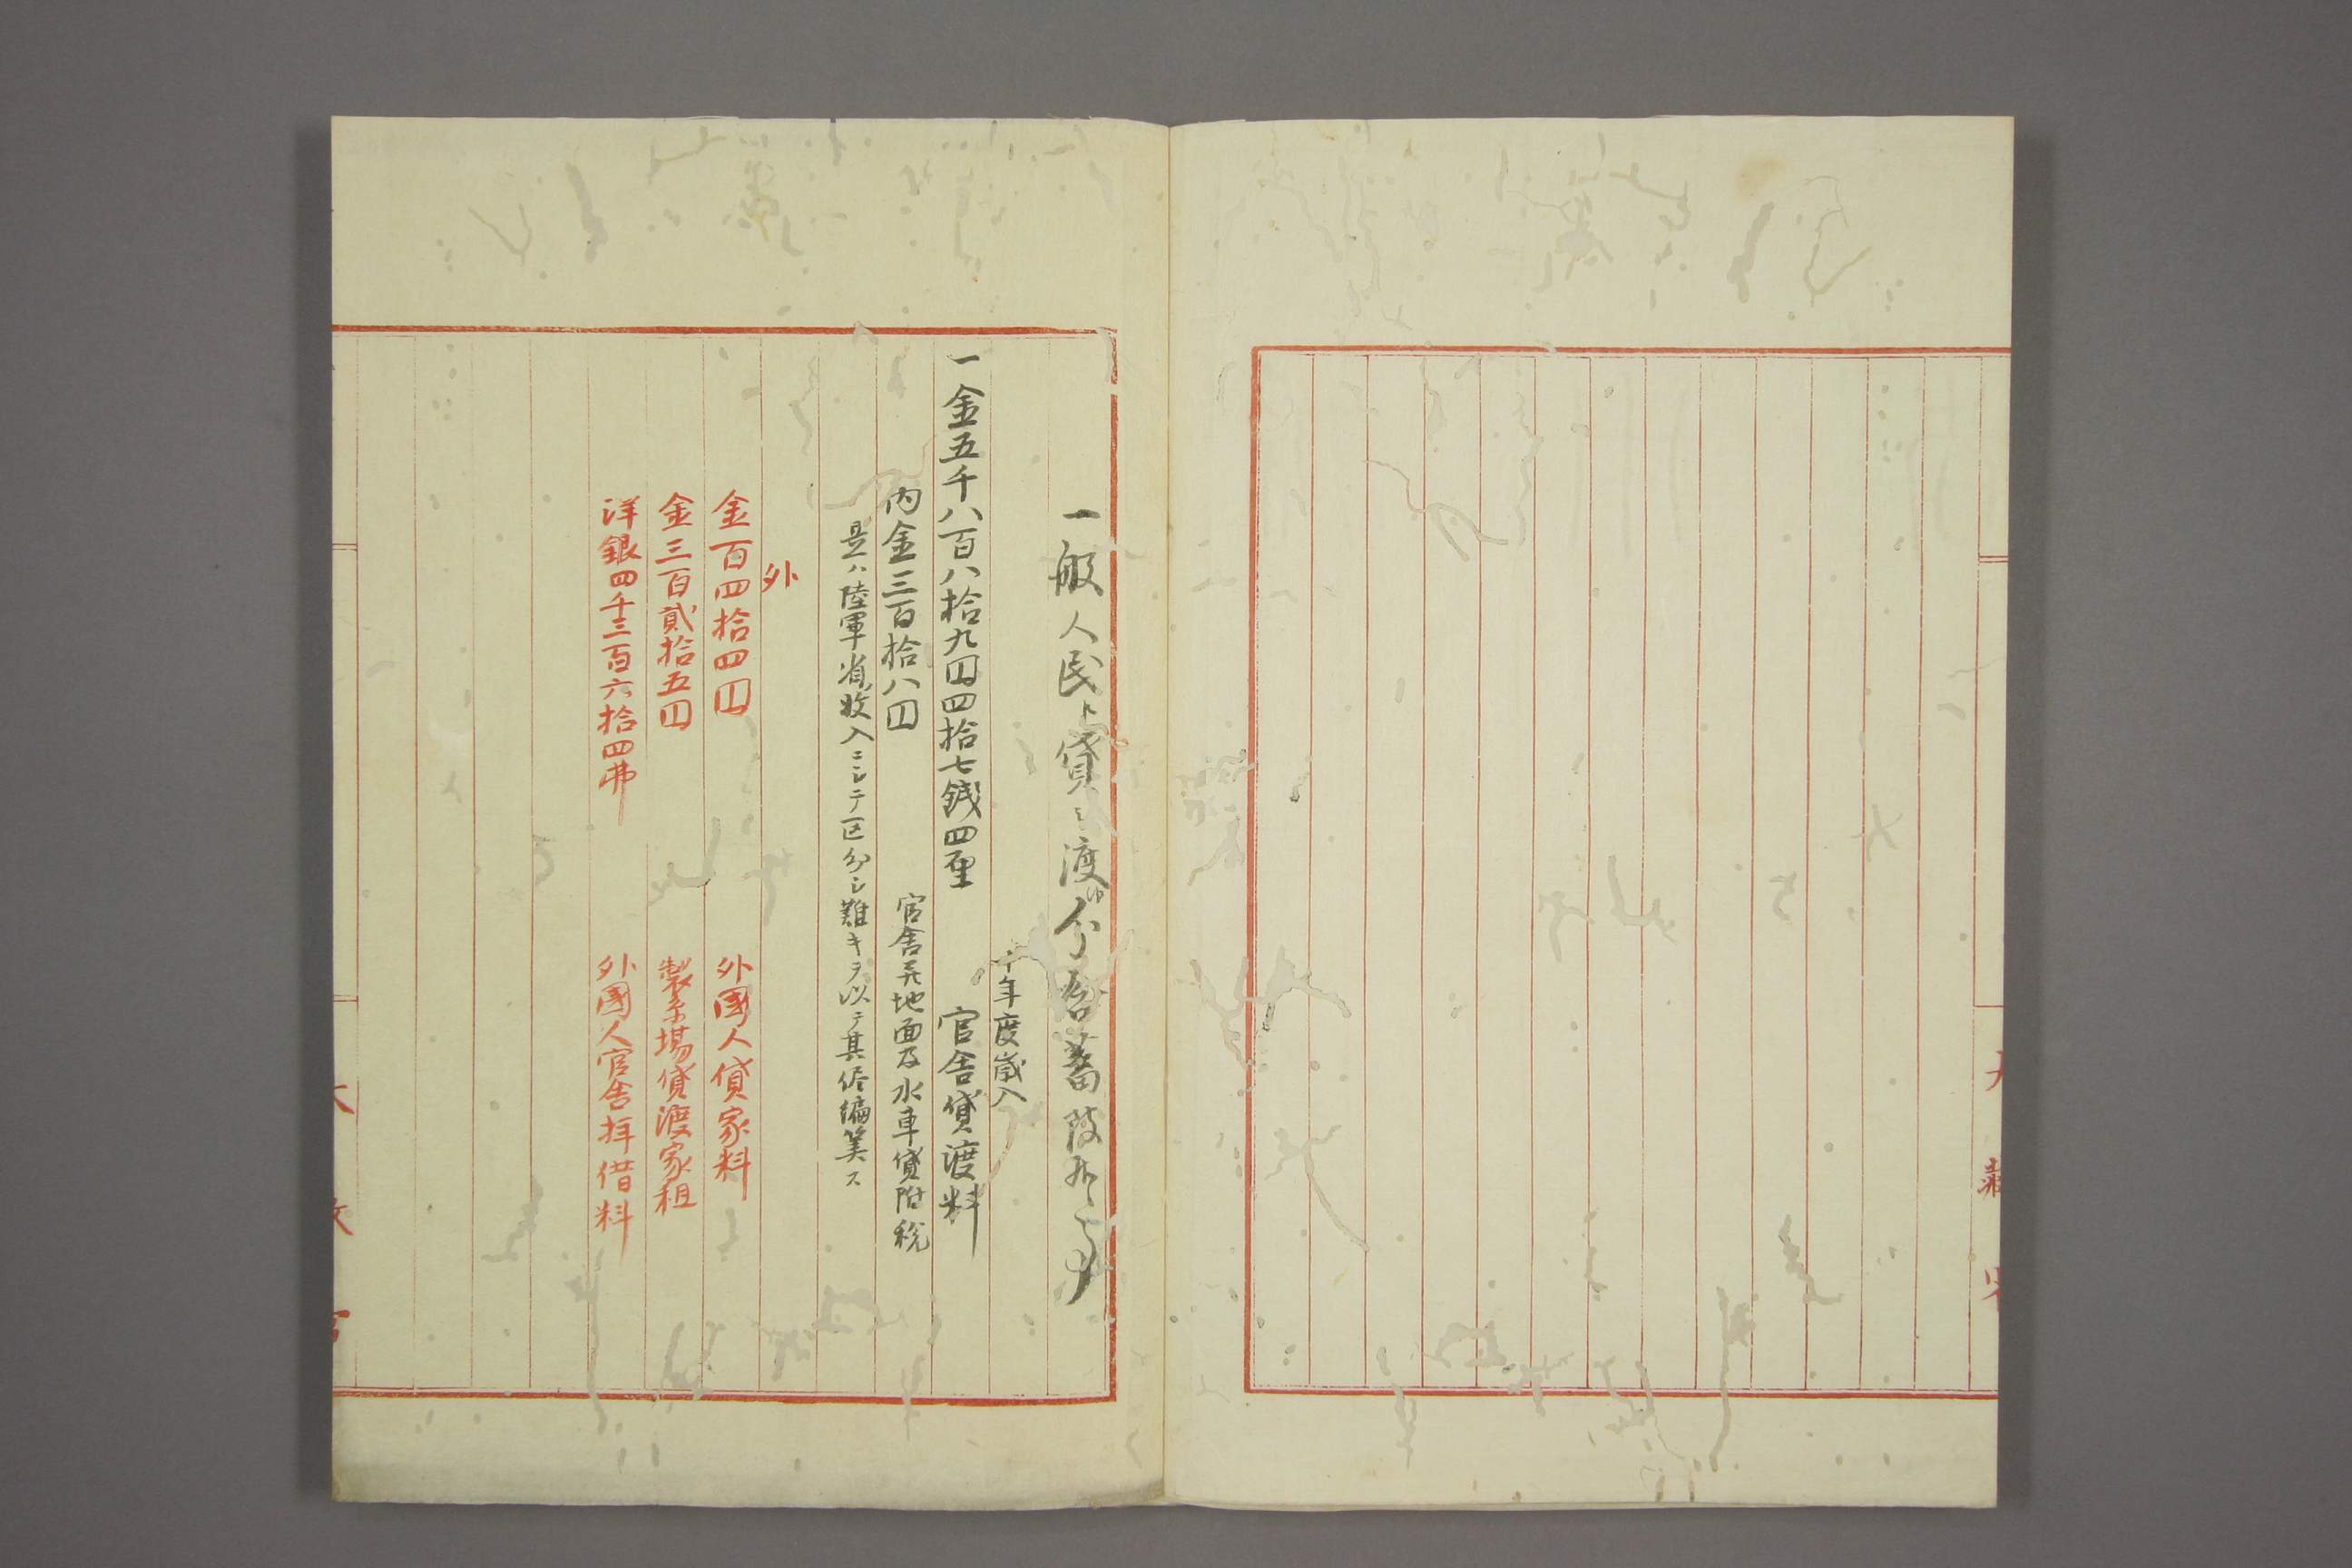 大藏省
一般人民ヘ貸シ渡
十年度歳入
一金五千八百八拾九円四拾七銭四厘 官舎貸渡料
内金三百拾八円 官舎并地面及水車貸附税
是ハ陸軍省收入ニシテ区分シ難キヲ以テ其侭編筭ス
外
金百四拾四円 外國人貸家料
金三百貳拾五円 製糸場貸渡家租
洋銀四千三百六拾四弗 外國人官舎拝借料